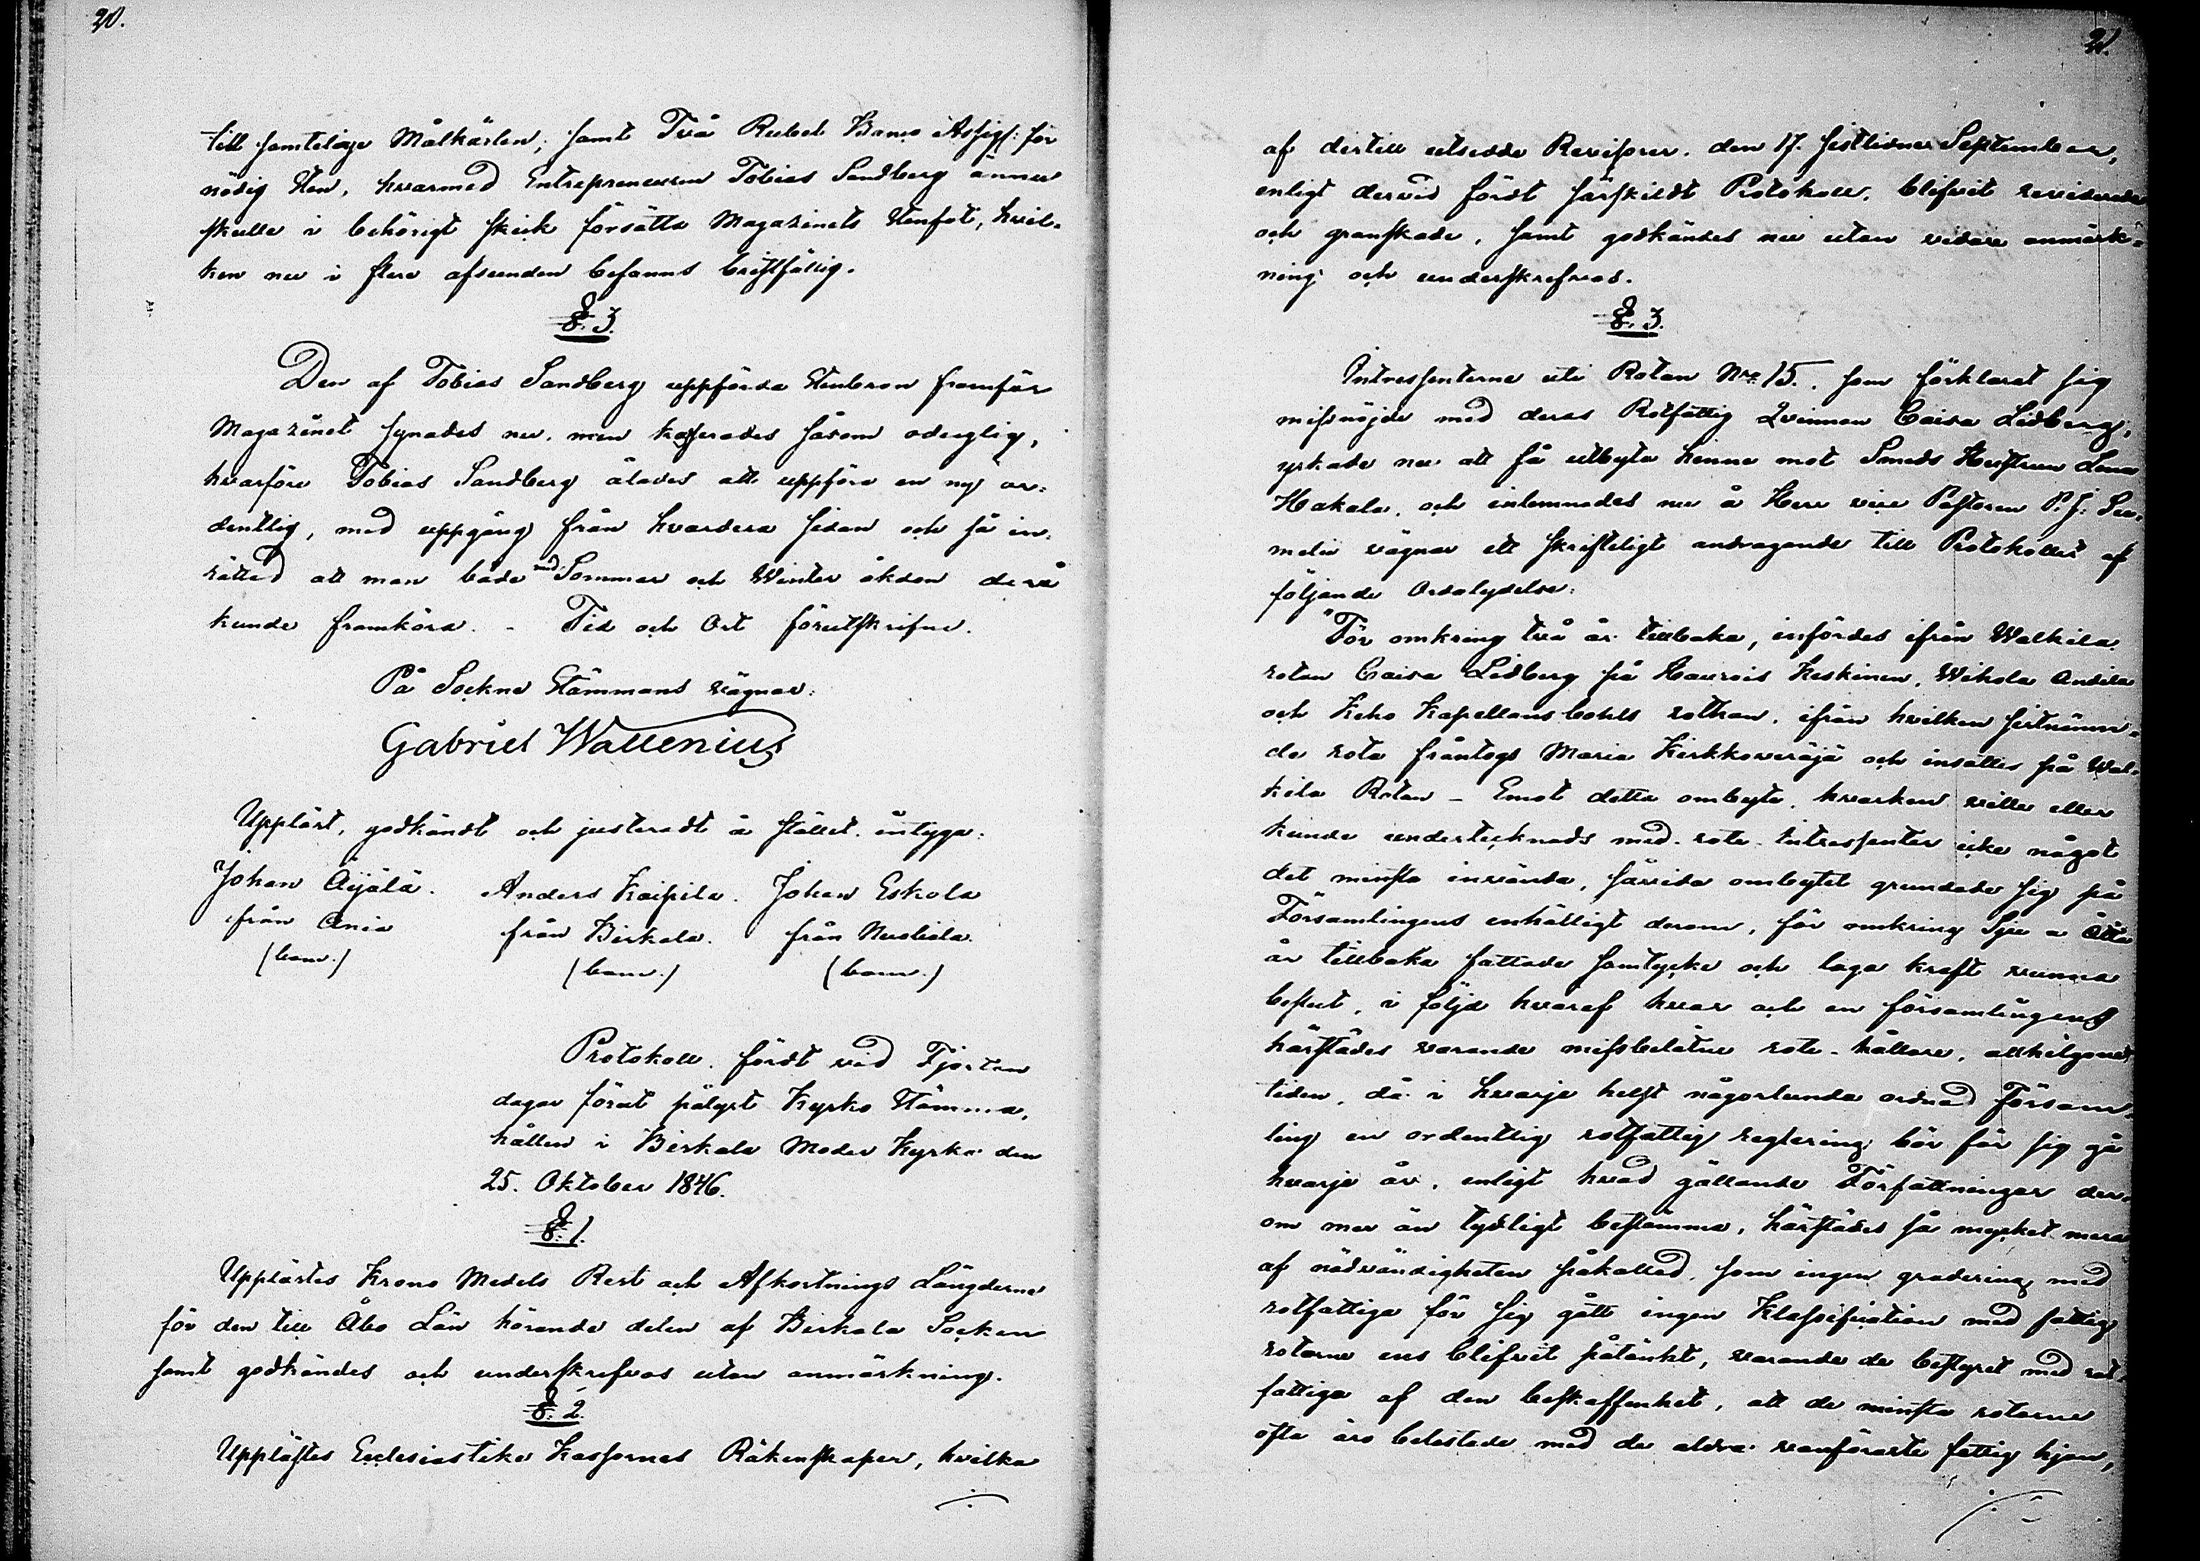 20.
till samtelige Målkärlen, samt Två Rubel Banco Assig: för
nödig Sten, hvarmed Entrepreneuren Tobias Sandberg ännu
skulle i behörigt skick försätta Magazinets Stenfot, hvil-
ken nu i flere afseenden befanns bristfällig.
§. 3.
Den af Tobias Sandberg uppförda Stenbron framför
Magazinet synades nu, men kasserades såsom oduglig,
hvarföre Tobias Sandberg ålades att uppföra en ny or-
dentlig, med uppgång från hvardera sidan och så in-
rättad att man både med Sommar och Winter åkdon derå
kunde framköra. - Tid och Ort förutskrifne.
På Sockne Stämmans vägnar:
Gabriel Wallenius
Uppläst, godkändt och justeradt å stället, intyga:
Johan Äijälä. Anders Kaipila. Johan Eskola
från Ania från Birkala. från Nuoliala.
(bom.) (bom.) (bom.)
Protokoll, fördt vid Fjorton
dagar förut pålyst Kyrko Stämma,
hållen i Birkala Moder Kyrka den
25. Oktober 1846.
§. 1.
Upplästes Krono Medels Rest och Afkortnings Längderne
för den till Åbo Län hörande delen af Birkala Socken
samt godkändes och underskrefvos utan anmärkning.
§. 2.
Upplästes Ecclesiastike Kassornes Räkenskaper, hvilka
21.
af dertill utsedde Revisorer, den 17. sistlidne September,
enligt dervid fördt särskildt Protokoll, blifvit reviderade
och granskade, samt godkändes nu utan vidare anmärk-
ning och underskrefvos.
§. 3.
Intressenterne uti Rotan Nro 15., som förklarat sig
missnöjde med deras Rotfattig Qvinnan Caisa Lidberg,
yrkade nu att få utbyta henne mot Smeds Hustrun Lena
Hakala, och inlemnades nu å Herr vice Pastoren P. J.
vägnar ett skrifteligt andragande till Protokollet af
följande Ordalydelse:
"För omkring två år tillbaka, infördes ifrån Walkila
rotan Caisa Lidberg på Keskinen, Wihola Andila
och Keho Kapellansbohls rothan, ifrån hvilken sistnämn-
da rota fråntogs Maria Kirkkoveräjä och insattes på Wal-
kila Rotan - Emot detta ombyte, hvarken ville eller
kunde undertecknads med-rote-Intressenter icke något
det minsta invända, såvida ombytet grundade sig på
Församlingens enhälligt derom, för omkring Sju a Åtta
år tillbaka fattade samtycke och laga kraft vunna
beslut, i följd hvaraf hvar och en församlingens
härstädes varande missbelåtne rote-hållare, allhelgona
tiden, då i hvarje helst någorlunda ordnad Försam-
ling en ordentlig rotfattig reglering bör för sig gå
hvarje år, enligt hvad gällande Författningar der-
om mer än tydligt bestämma, härstädes så mycket mera
af nödvändigheten påkallad, som ingen gradering med
rotfattiga för sig gått ingen Klassifikation med fattig
rotarne ens blifvit påtänkt, varande de bestyret med rot-
fattiga af den beskaffenhet, att de minsta rotarne
ofta äro belastade med de aldra vanförasta fattig hjon,